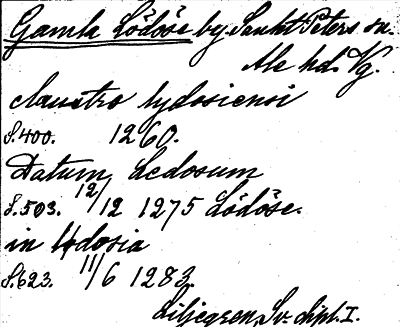 Gamla Lödöse by. Sankt Peters sn.
Ale hd. Vg.
claustro lydosiensi
S. 400. 1260.
Datum Ledosum
S. 503. 12/12 1275 Lödöse.
in Lydosia
S. 623. 11/6 1283.
Liljegren, Sv. dipl. I.